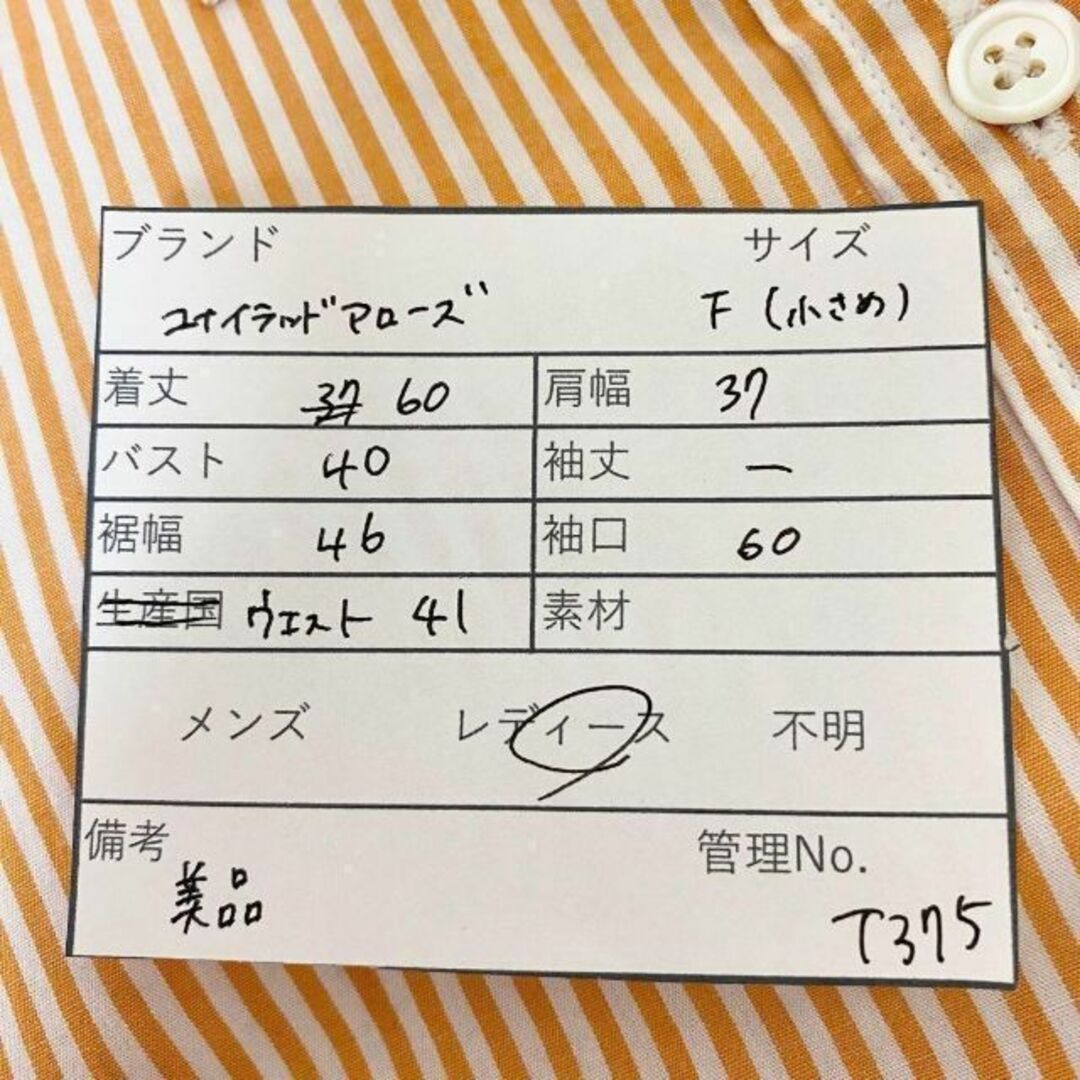 ブランド サイズ
ユナイテッドアローズ F (小さめ)
着丈 37 60 肩幅 37
バスト 40 袖丈 ー
裾幅 46 袖口 60
生産国 ウエスト 41 素材
メンズ レディース 不明
備考 管理No.
美品 T375